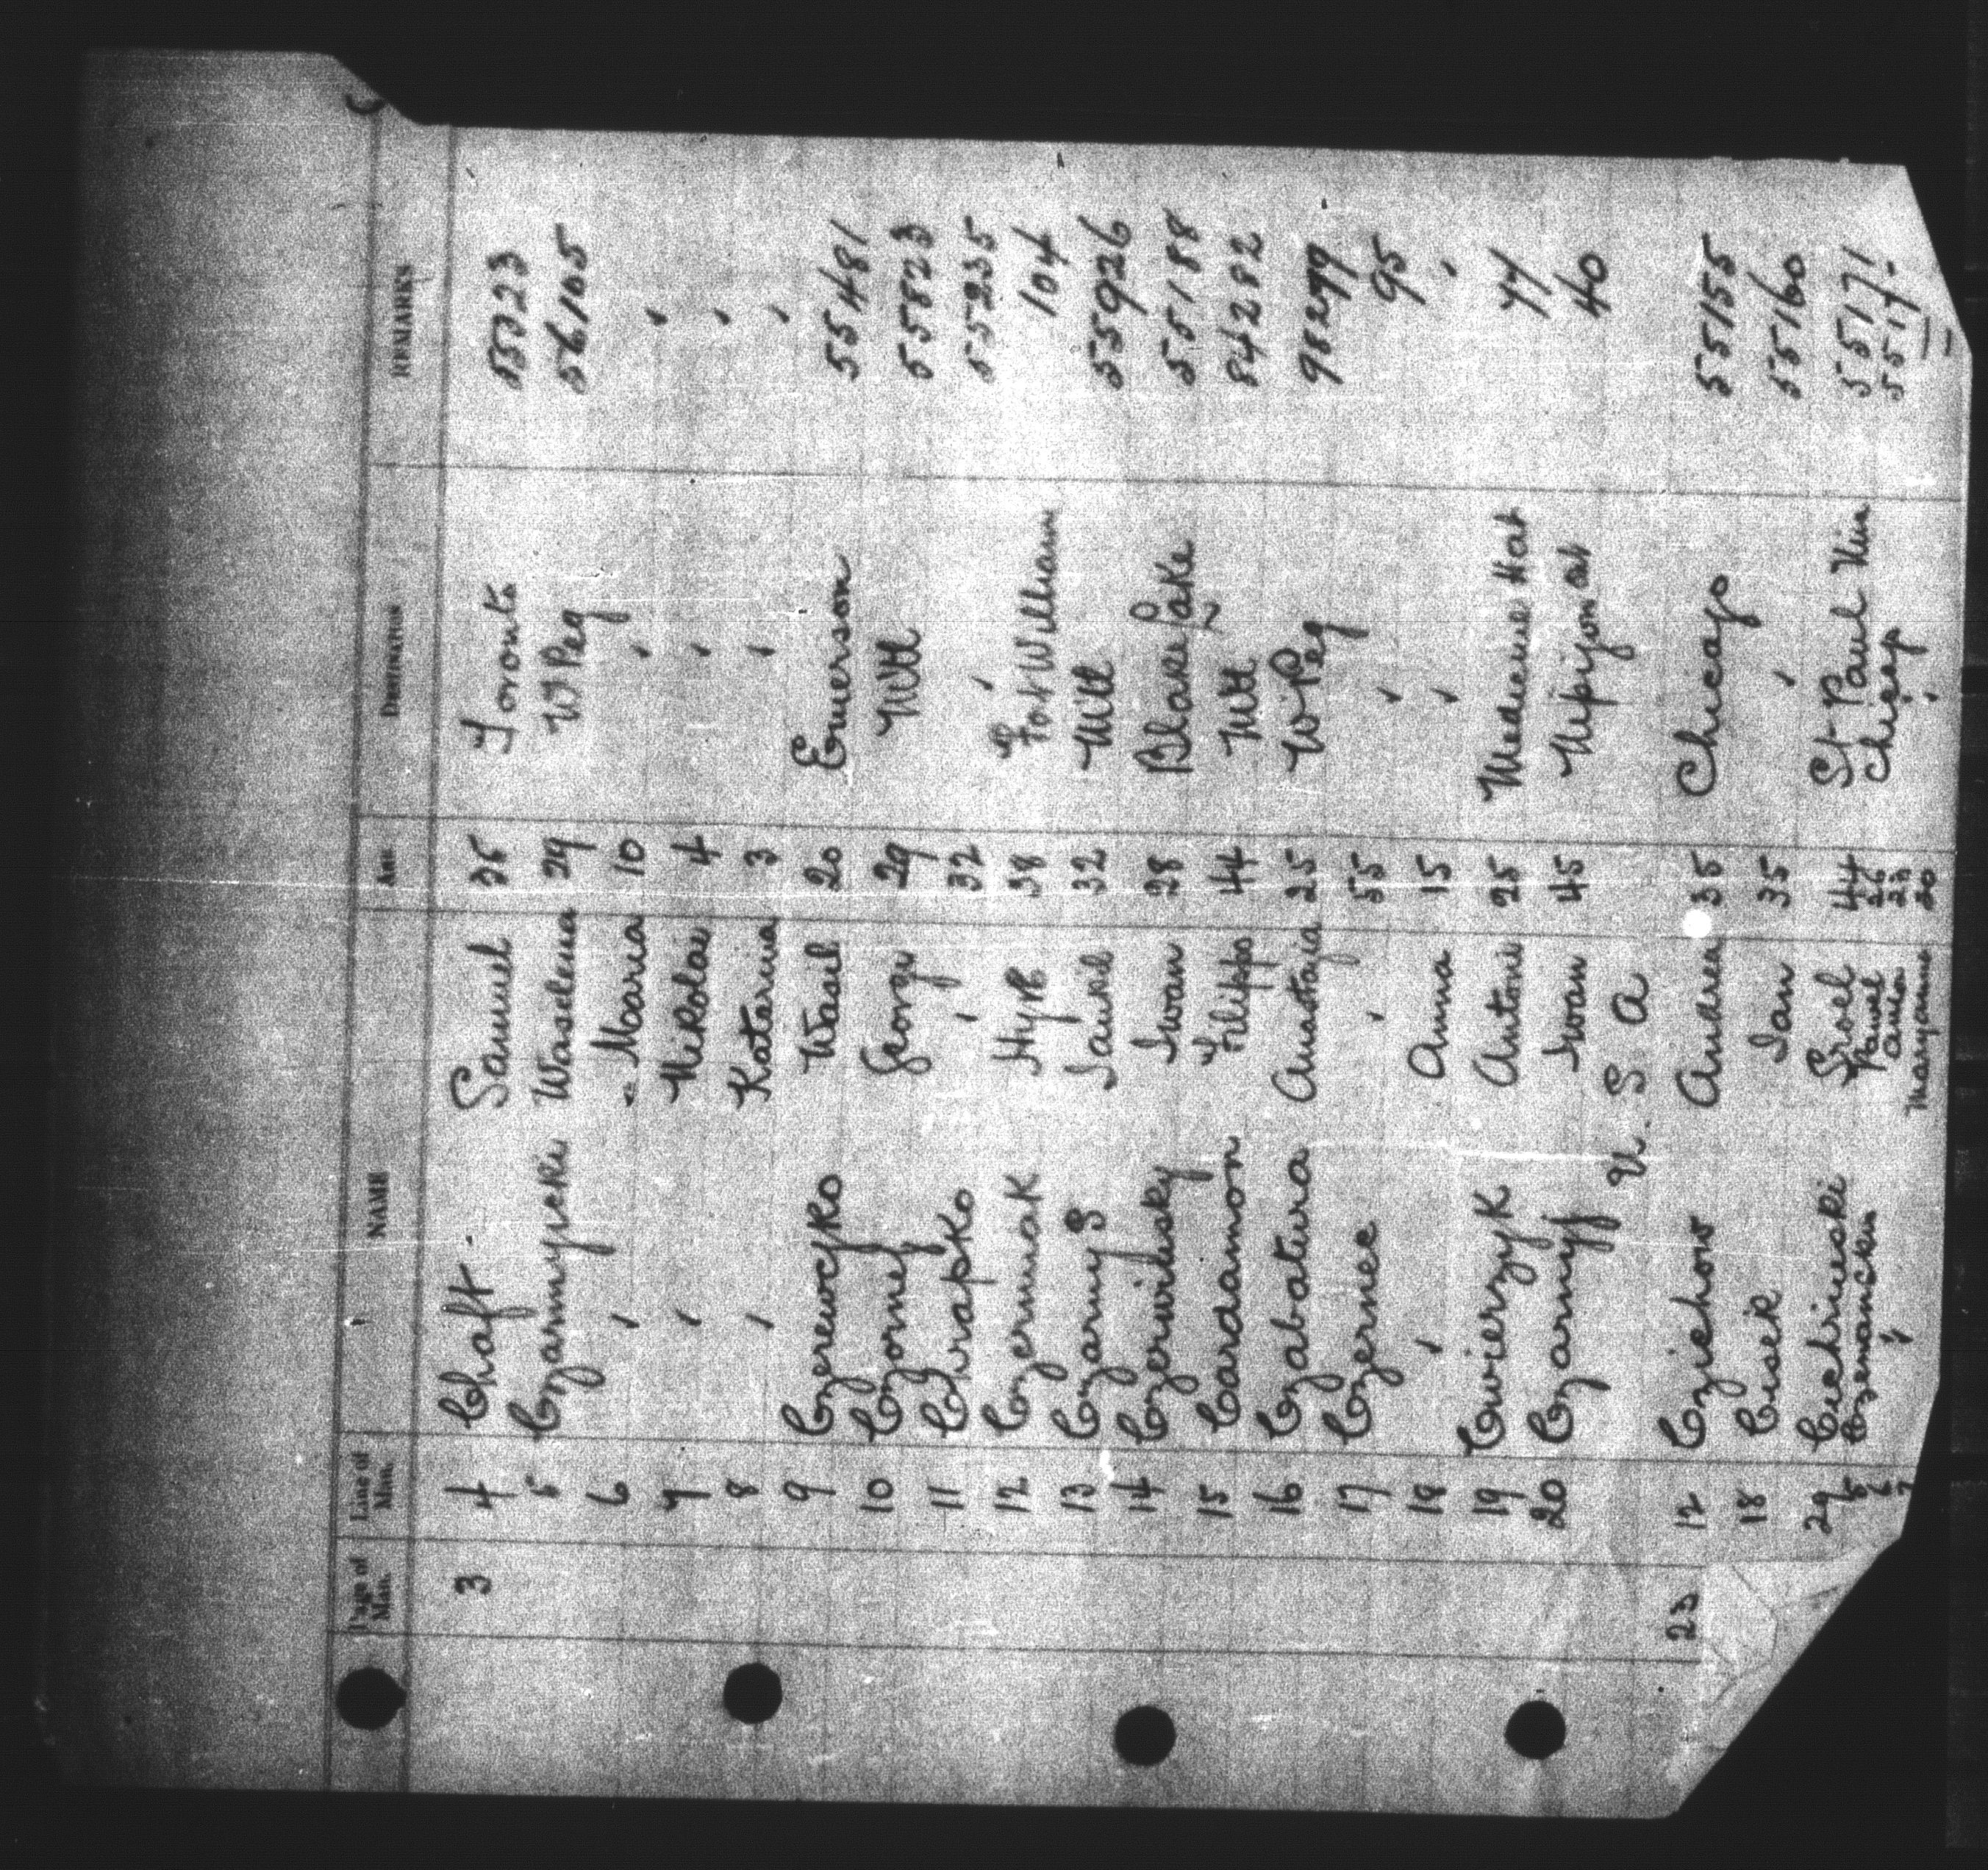 Page of Man. Line of Man. NAME AGE DESTINATION REMARKS
3 4 Chaft. Samuel 35 Toronto 55023
5 Czarnnycki Waselena 29 WPeg 56105
6 " - Maria 10 " "
7 " Nikolai 4 " "
8 " Kataria 3 " "
9 Czerewczko Wasil 20 Emerson 55481
10 Czornej George 29 Mtl 55823
11 Chrapko " 32 " 55235
12 Czermak Hyp 38 Fort William 104
13 Czarny S 32 Mtl 55926
14 Czerwilasky Iwan 28 Blake Lake 55188
15 Cardamon Filippo 44 Mtl 84282
16 Czabatura Anastazia 25 WPeg
17 Czernec " 55 " 95
18 " Anna 15 " "
19 Cwierzyk Antoni 25 Medicine Hat
20 Czarnyj Iwan 45 Nipigon 40
U. S A
23 12 Cziehow Andrea 35 Chicago 55155
18 Cisek Jan 35 " 55160
29 Srol 44 St Paul Min 55171
5 Pawel Chicago
6 "
7 Maryanna 20 "